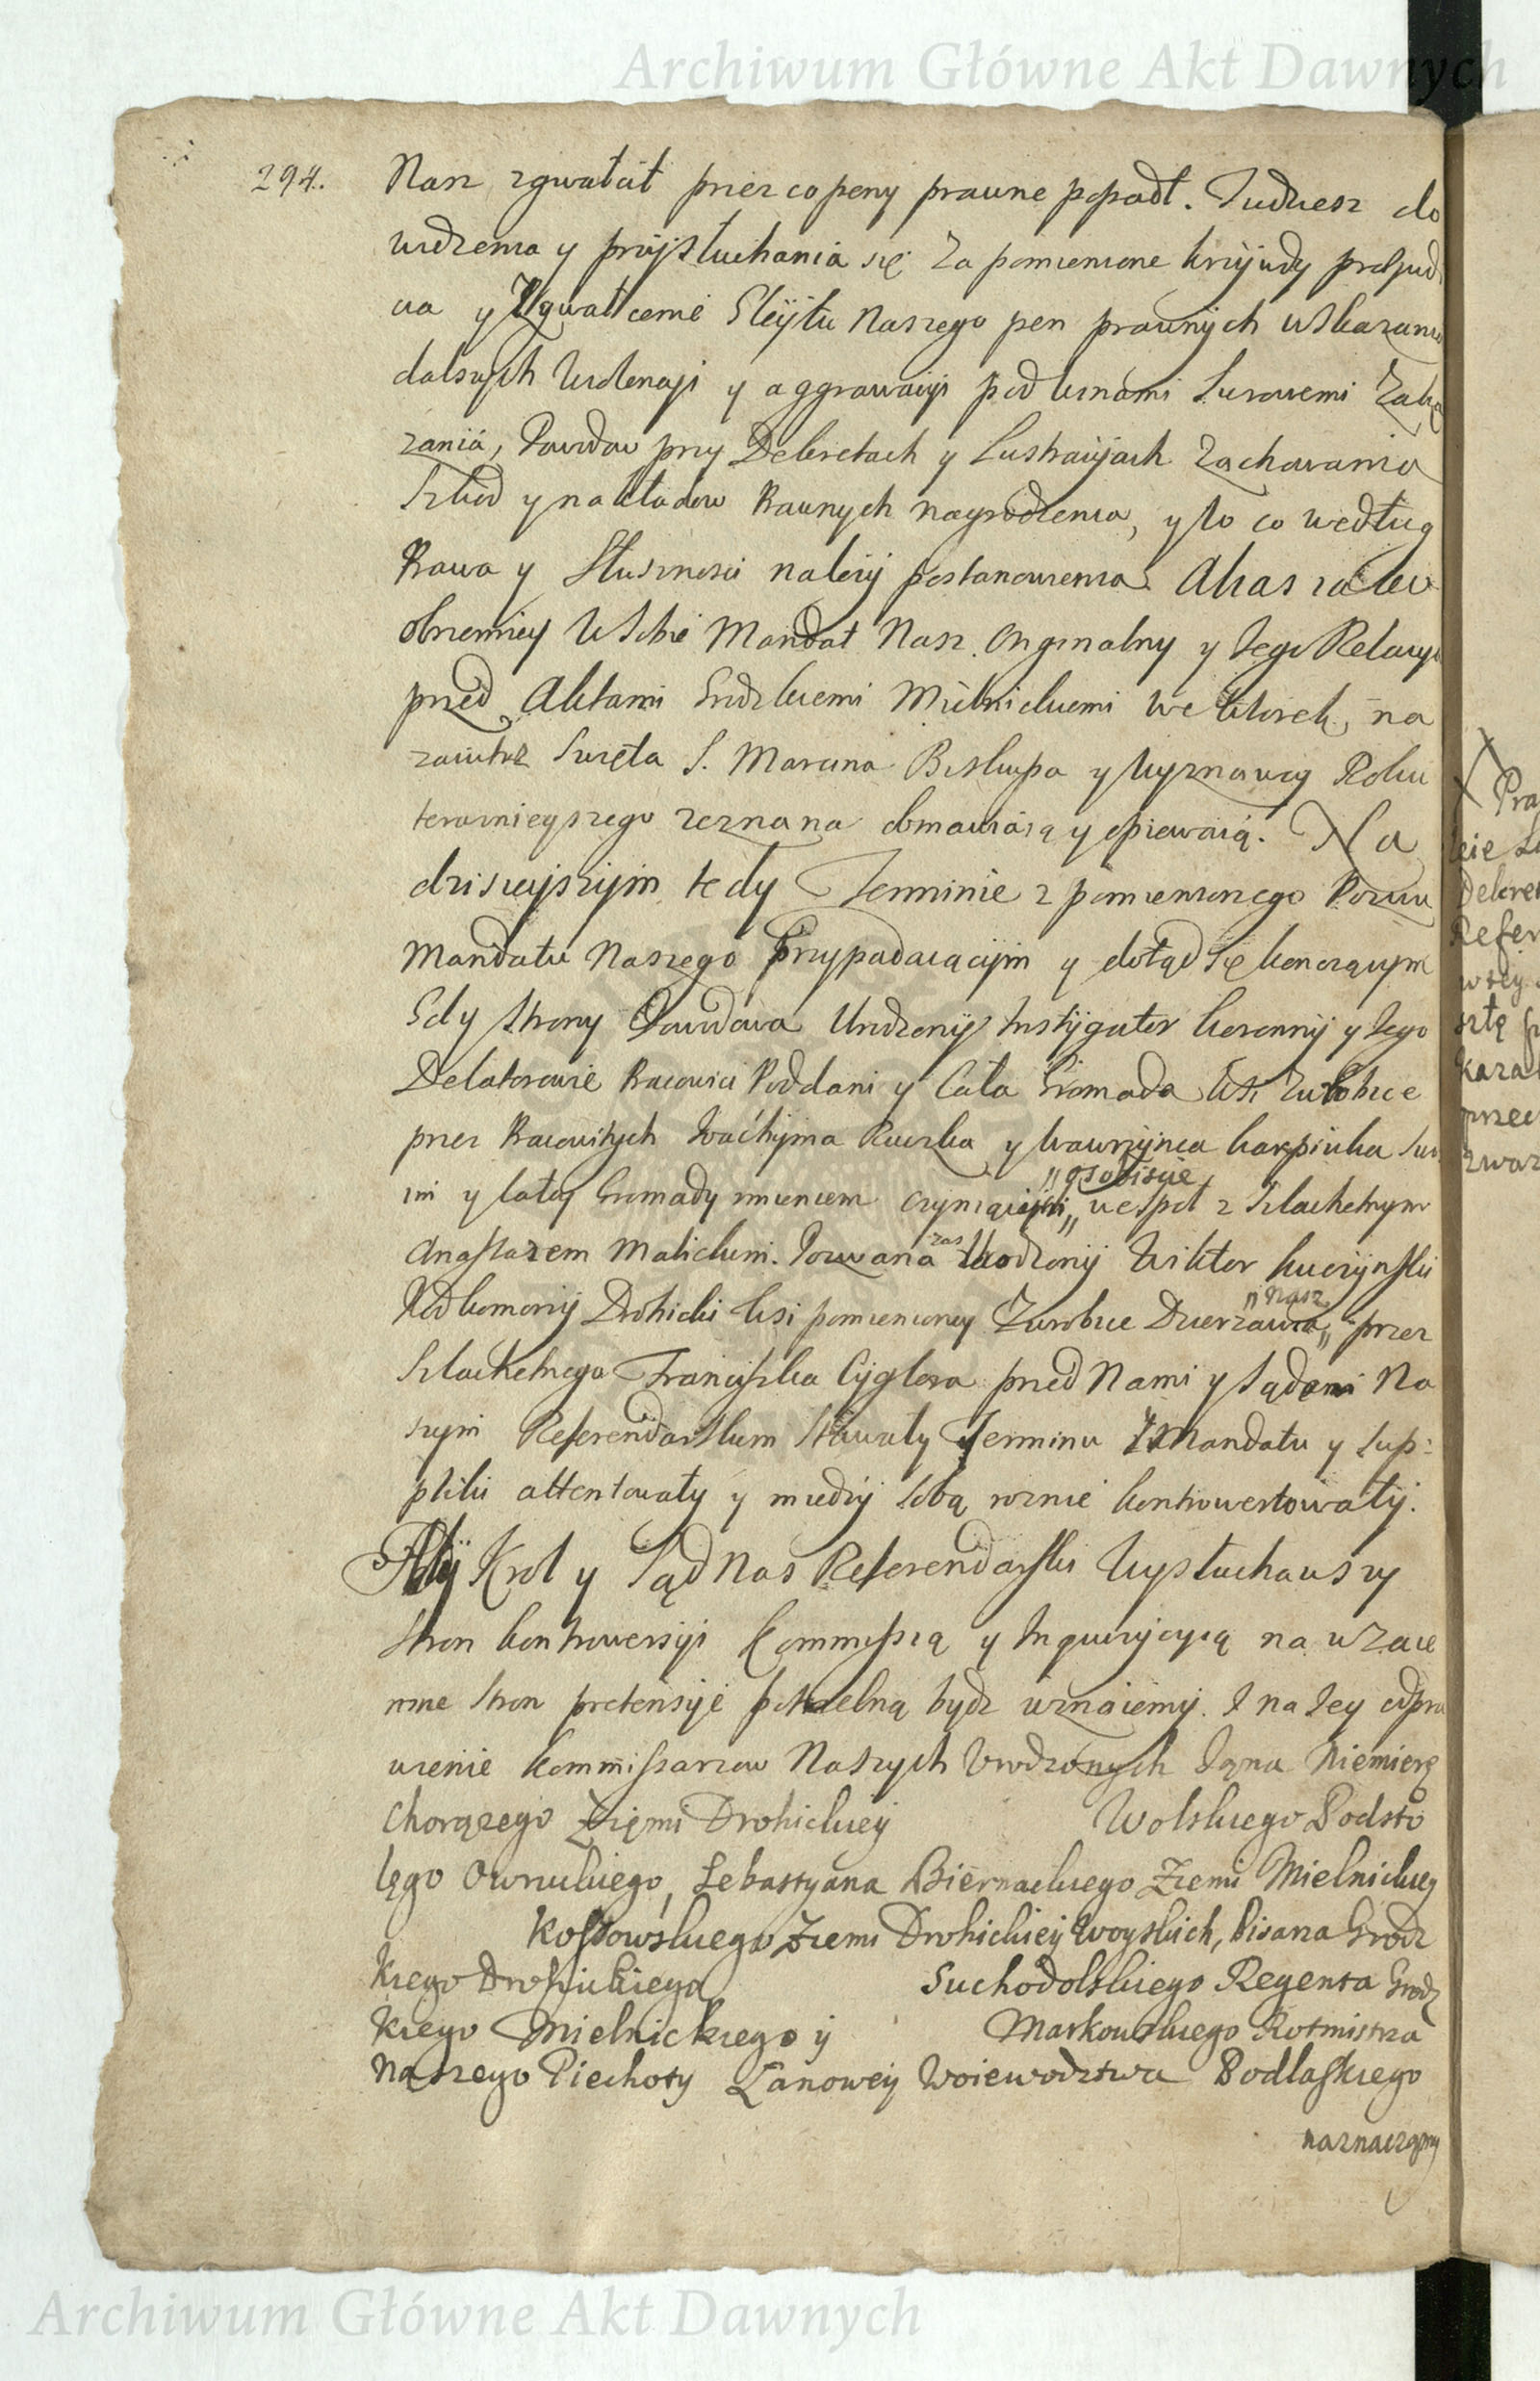 Archiwum Główne Akt Dawnych
294.
Nasz zgwałcił przez co peny prawne popadł. Tudziesz do
widzenia y przÿsłuchania się za pomienione krzÿwdy prejud
cia y Zgwałcenie Gleÿtu Naszego pen prawnÿch wskazaniu
dalszych wiolencyi y aggrawacyi pod winami surowemi zaka
zaniá, Powodow przy Dekretach y Lustracÿach zachowania
Szkod y nakładow Prawnych nagrodzenia, y to co według
Prawa y Słusznosci należÿ postanowienia. Akas zależ
obszerniey w Sobie Mandat Nasz Orginalny y Jego Relacyi
przed Aktami Grodzkiemi Mielnickiemi we Wtorek, na
zaiutrz Swięta S. Marcina Biskupa y Wyznawcy Roku
teraznieyszego zeznana obmawiaią y opiewaią. Na
dzisieÿszÿm tedy Terminie z pomienionego Pozwu
Mandatu Naszego Przypadaiącÿm y dotąd się konczącym
Gdy strony Powodowa Urodzony Instÿgator koronnÿ y Jego
Delatorowie Pracowici Poddani y Cała Gromada Wsi Zurobice
przez Pracowitych Iwachÿma Ruczka y Wawrzÿnca karpiuka swo
im y całej Gromady imieniem czyniącÿch „osobiscie„ wespoł z Szlachetnym
Anastazem Malickim. Pozwana zas Urodzonÿ Wiktor kuczÿnski
Podkomorzÿ Drohicki Wsi pomienioney Zurobice Dzierzawca „Nasz„ przez
Szlachetnego Franciszka Cÿglera przed Nami y Sądem Na
szym Referendarskim Stawały Terminu Z Mandatu y Sup:
pliki attentowały y miedzÿ sobą roznie kontrowertowałÿ.
My Krol y Sąd Nas Referendarski Wysłuchawszy
stron kontrowersÿi kommissią y Inquizÿcyią na wzaie
mne stron pretensÿe potrzebną bydz uznaiemy. I na Jey odpra
wienie kommissarzow Naszych Urodzonych Jana Niemierę
Chorązego Ziemi Drohickieÿ Wolskiego Podsto
lego Owruckiego, Sebastyana Biernackiego Ziemi Mielnickieÿ
Kossowskiego Ziemi Drohickieÿ Woyskich, Pisarza Grodz
kiego Drohickiego Suchodolskiego Regenta Grodz
kiego Mielnickiego ÿ Markowskiego Rotmistrza
Naszego Piechoty Łanoweÿ Woiewodztwa Podlaskiego
naznaczamy
Pra
kie
dekret
Refer
wsey
kaza
przed
zwaz
Archiwum Główne Akt Dawnych